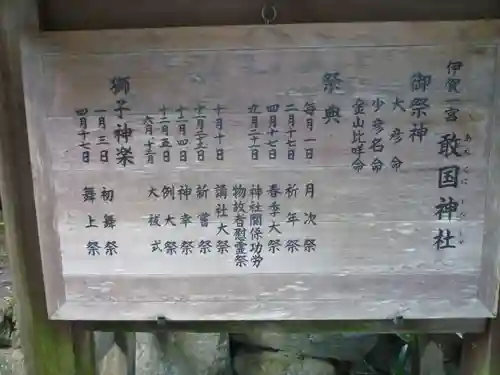 伊賀一宮 敢国神社
御祭神
大彦命
少彦名命
金山比咩命
祭典
毎月一日 月次祭
二月十七日 祈年祭
四月十七日 春季大祭
九月二十日 神社関係功労
物故者慰霊祭
十月十日 講社大祭
十一月二三日 新嘗祭
十二月四日 神幸祭
十二月五日 例大祭
六月十二月 大祓式
獅子神楽
一月三日 初舞祭
四月十七日 舞上祭